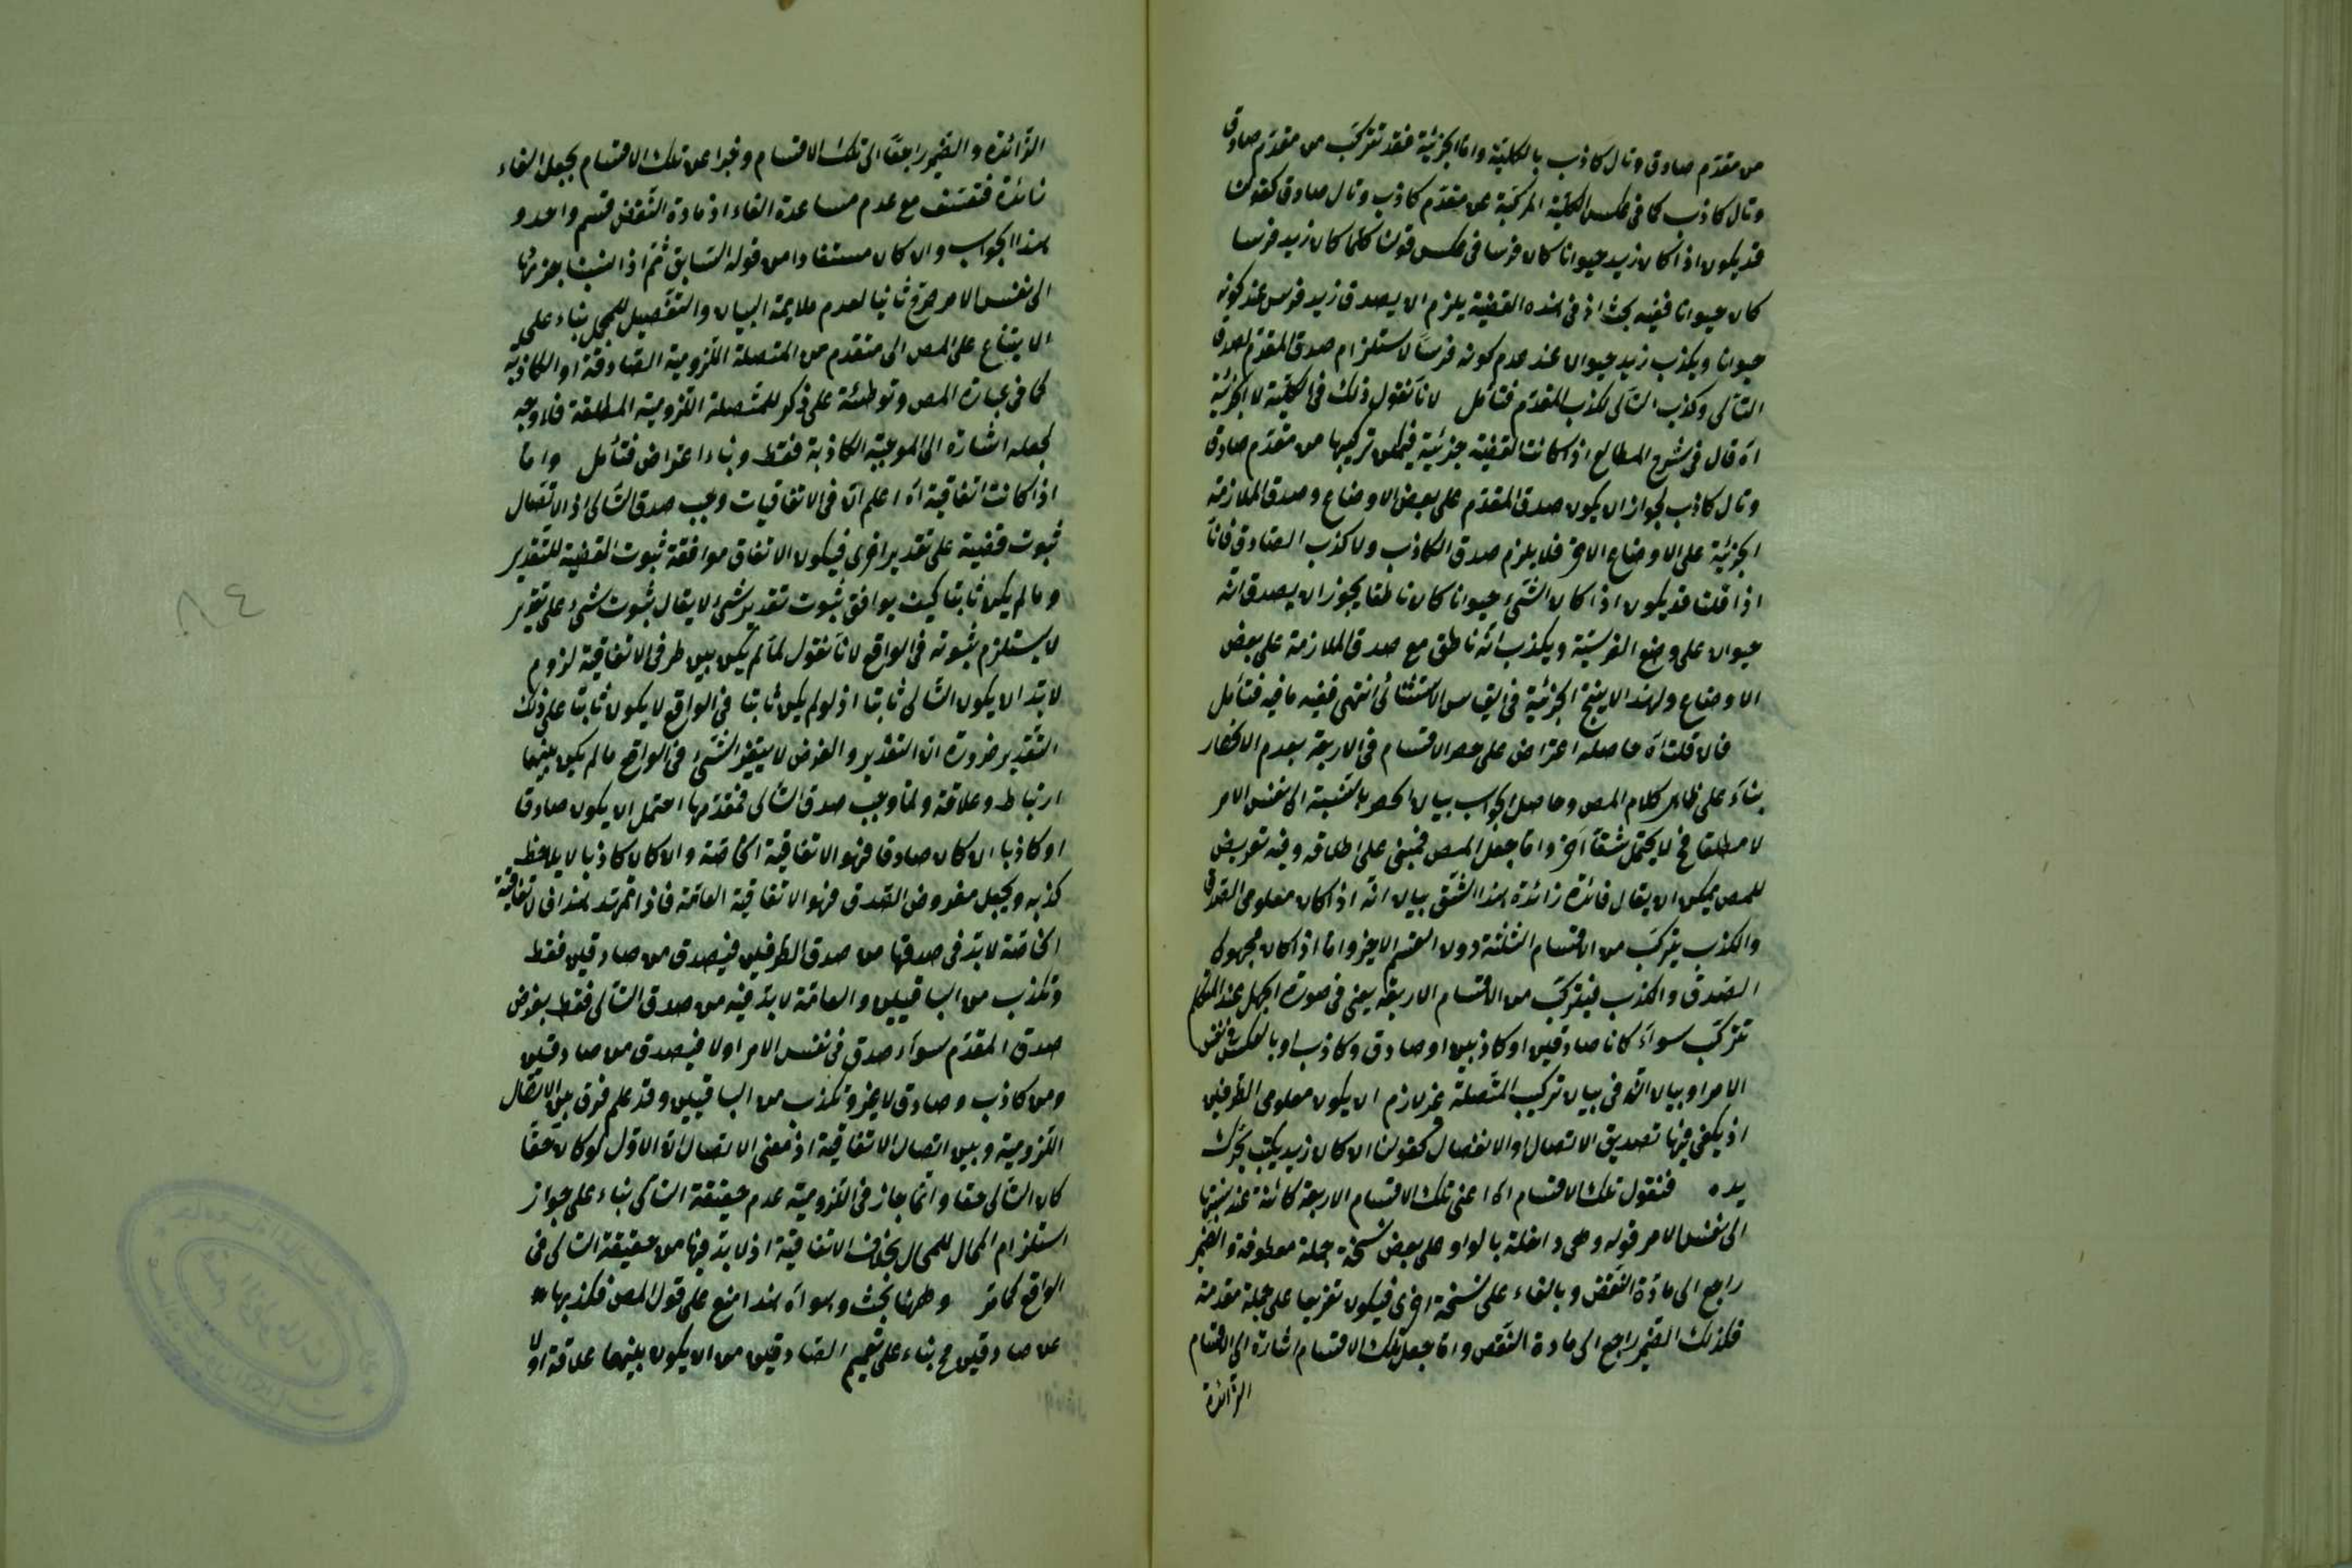 من مقدّم صادق وتال كاذب بالكلية واما الجزئية فقد تتركب من مقدّم صادق
وتال كاذب كما فى عكس الكلية المركبة عن مقدّم كاذب وتال صادق كقولنا
قد يكون اذا كان زيد حيوانا كان فرسا فى عكس قولنا كلما كان زيد فرسا
كان حيوانا ففيه بحث اذ فى هذه القضية يلزم ان يصدق زيد فرس عند كونه
حيوانا ويكذب زيد حيوان عند عدم كونه فرسا لاستلزام صدق المقدّم لصدق
التالى وكذب التالى لكذب المقدّم فتأمل لانا نقول ذلك فى الكلية لا الجزئية
اه قال فى شرح المطالع اذا كانت القضية جزئية فيمكن تركيبها من مقدّم صادق
وتال كاذب لجواز ان يكون صدق المقدّم على بعض الاوضاع وصدق الملازمة
الجزئية على الاوضاع الاخر فلا يلزم صدق الكاذب ولا كذب الصادق فانا
اذا قلنا قد يكون اذا كان الشئ حيوانا كان ناطقا يجوز ان يصدق انه
حيوان على وضع الفرسية ويكذب انه ناطق مع صدق الملازمة على بعض
الاوضاع ولهذا لا ينتج الجزئية فى القياس الاستثنائى انتهى ففيه ما فيه فتأمل
فان قلت اه حاصله اعتراض على حصر الاقسام فى الاربعة بعدم الانحصار
بناء على ظاهر كلام المص وحاصل الجواب بيان الحصر بالنسبة الى نفس الامر
لا مطلقا فح لا يحتمل شقا آخر واما جعل المص فمبنى على اطلاقه وفيه تعريض
للمص يمكن ان يقال فائدة زائدة هذا الشق بيان انه اذا كان معلومى الصدق
والكذب يتركب من الاقسام الثلثة دون القسم الاخير واما اذا كان مجهولى
الصدق والكذب فيتركب من الاقسام الاربعة يعنى فى صورة الجهل عند المتكلم
تتركب سواء كانا صادقين او كاذبين او صادق وكاذب او بالعكس فى نفس
الامر او بيان انه فى بيان تركيب المتصلة غير لازم ان يكون معلومى الطرفين
اذ يكفى فيها تصديق الاتصال او الانفصال كقولنا ان كان زيد يكتب يحرك
يده فنقول تلك الاقسام اه اعنى تلك الاقسام الاربعة كائنة عند نسبتها
الى نفس الامر قوله وهى داخلة بالواو على بعض نسخة جملة معطوفة والضمير
راجع الى مادّة النقض وبالفاء على نسخة اخرى فيكون تفريعا على جملة مقدمة
فكذلك الضمير راجع الى مادة النقض واما جعل تلك الاقسام اشارة الى الاقسام
الزائدة
الزّائدة والضمير راجعا الى تلك الاقسام وخبرا عن تلك الاقسام بجعل الفاء
زائدة فتعسف مع عدم مساعدة الفاء اذ مادة النقض قسم واحد و
هذا الجواب وان كان مستفادا من قوله السابق ثم اذا نسبنا جزئيها
الى نفس الامر صرح ثانيا لعدم ملايمة البيان والتفصيل للمجمل بناء على
الامتناع على المص الى متقدم من المتصلة اللزومية الصادقة او الكاذبة
كما فى عبارة المص وتوطئة على ذكر للمتصلة اللزومية المطلقة فلا وجه
لجعله اشارة الى الموجبة الكاذبة فقط وبناء اعتراض فتأمل واما
اذا كانت اتفاقية اه اعلم ان فى الاتفاقيات وجب صدق التالى اذ الاتصال
ثبوت قضية على تقدير اخرى فيكون الاتفاق موافقة ثبوت القضية للتقدير
وما لم يكن ثابتا كيف يوافق ثبوت تقدير شئ لا يقال ثبوت شئ على تقدير
لا يستلزم ثبوته فى الواقع لانا نقول لما لم يكن بين طرفى الاتفاقية لزوم
لا بد ان يكون التالى ثابتا اذ لو لم يكن ثابتا فى الواقع لا يكون ثابتا على ذلك
التقدير ضرورة ان التقدير والفرض لا يغير الشئ فى الواقع ما لم يكن بينهما
ارتباط وعلاقة ولما وجب صدق التالى فمقدمها احتمل ان يكون صادقا
او كاذبا ان كان صادقا فهو الاتفاقية الخاصة وان كان كاذبا لا يلاحظ
كذبه ويجعل مفروض الصدق فهو الاتفاقية العامة فاذا تمهد هذا فالاتفاقية
الخاصة لا بد فى صدقها من صدق الطرفين فيصدق من صادقين فقط
وتكذب من الباقيين والعامة لا بد فيه من صدق التالى فقط بفرض
صدق المقدّم سواء صدق فى نفس الامر او لا فيصدق من صادقين
ومن كاذب وصادق لا غير وتكذب من الباقيين وقد علم فرق بين الاتصال
اللزومية وبين اتصال الاتفاقية اذ معنى الاتصال ان الاول لو كان حقا
كان التالى حقا وانما جاز فى اللزومية عدم حقيقة التالى بناء على جواز
استلزام المحال للمحال بخلاف الاتفاقية اذ لا بد فيها من حقيقة التالى فى
الواقع كما مر وههنا بحث وسواه هذا منع على قول المص فكذبها
عن صادقين مح بناء على تعميم الصادقين من ان يكون بينهما علاقة او لا
٨٤